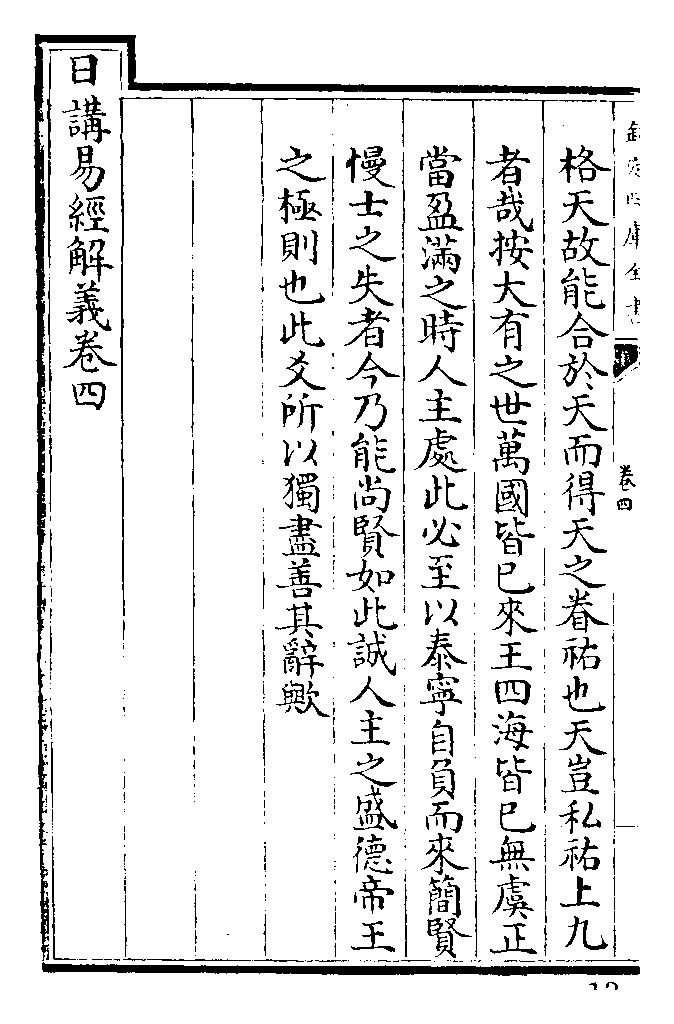 欽定四庫全書
卷四
格天故能合於天而得天之眷祐也天豈私祐上九
者哉按大有之世萬國皆已來王四海皆已無虞正
當盈滿之時人主處此必至以泰寧自負而來簡賢
慢士之失者今乃能尚賢如此誠人主之盛德帝王
之極則也此爻所以獨盡善其辭歟
日講易經解義卷四